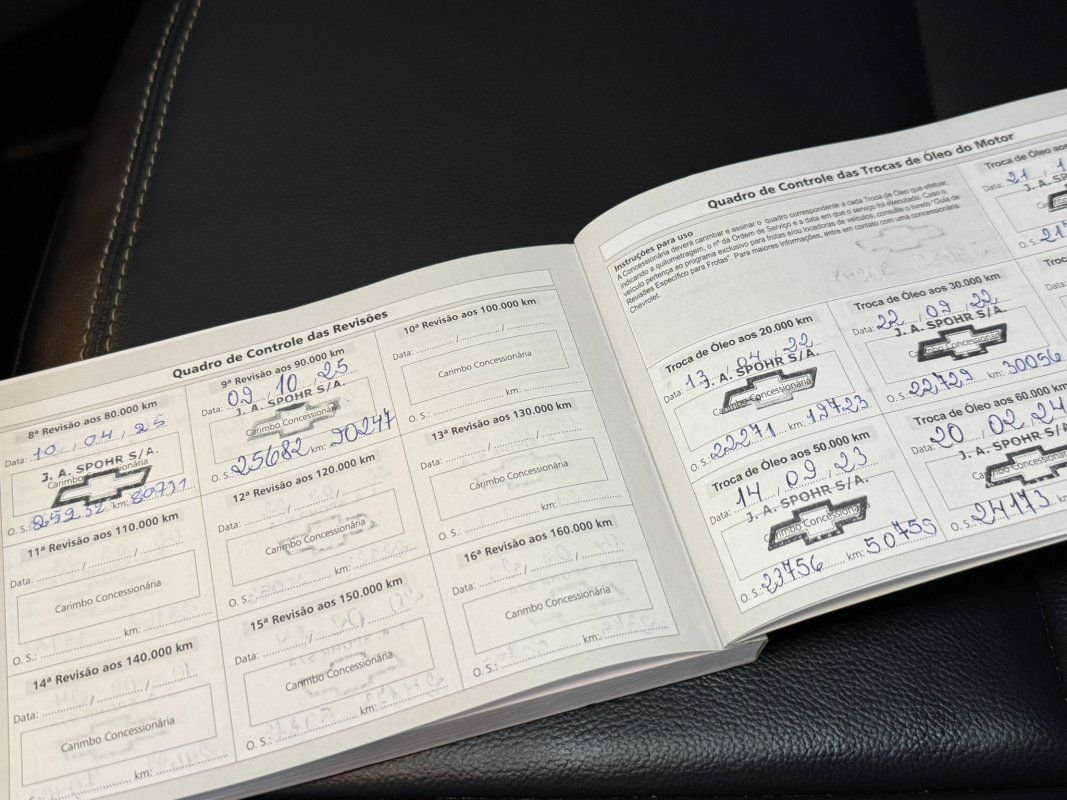 Quadro de Controle das Revisões
8ª Revisão aos 80.000 km
Data: 10 / 04 / 25
J. A. SPOHR S/A.
Carimbo Concessionária
O. S.: 25232 km: 80731
9ª Revisão aos 90.000 km
Data: 09 / 10 / 25
J. A. SPOHR S/A.
Carimbo Concessionária
O. S.: 25682 km: 90247
10ª Revisão aos 100.000 km
Data: / /
Carimbo Concessionária
O. S.: km:
11ª Revisão aos 110.000 km
Data: / /
Carimbo Concessionária
O. S.: km:
12ª Revisão aos 120.000 km
Data: / /
Carimbo Concessionária
O. S.: km:
13ª Revisão aos 130.000 km
Data: / /
Carimbo Concessionária
O. S.: km:
14ª Revisão aos 140.000 km
Data: / /
Carimbo Concessionária
km:
15ª Revisão aos 150.000 km
Data: / /
Carimbo Concessionária
O. S.: km:
16ª Revisão aos 160.000 km
Data: / /
Carimbo Concessionária
O. S.: km:
Quadro de Controle das Trocas de Óleo do Motor
Instruções para uso
A Concessionária deverá carimbar e assinar o quadro correspondente a cada Troca de Óleo que efetuar,
indicando a quilometragem, o nº da Ordem de Serviço e a data em que o serviço foi executado. Caso o
veículo pertença ao programa exclusivo para frotas e/ou locadoras de veículos, consulte o livreto "Guia de
Revisões Específico para Frotas". Para maiores informações, entre em contato com uma concessionária
Chevrolet.
Troca de Óleo aos
Data: 21
J. A. SP
O. S.:
Troca de Óleo aos 20.000 km
Data: 13 / 04 / 22
J. A. SPOHR S/A.
Carimbo Concessionária
O. S.: 22271 km: 19723
Troca de Óleo aos 30.000 km
Data: 22 / 09 / 22
J. A. SPOHR S/A.
Carimbo Concessionária
O. S.: 22729 km: 30056
Troc
Data:
Troca de Óleo aos 50.000 km
Data: 14 / 09 / 23
J. A. SPOHR S/A.
Carimbo Concessionária
O. S.: 23756 km: 50755
Troca de Óleo aos 60.000 km
Data: 20 / 02 / 24
J. A. SPOHR S/A
Carimbo Concessionária
O. S.: 24173 km